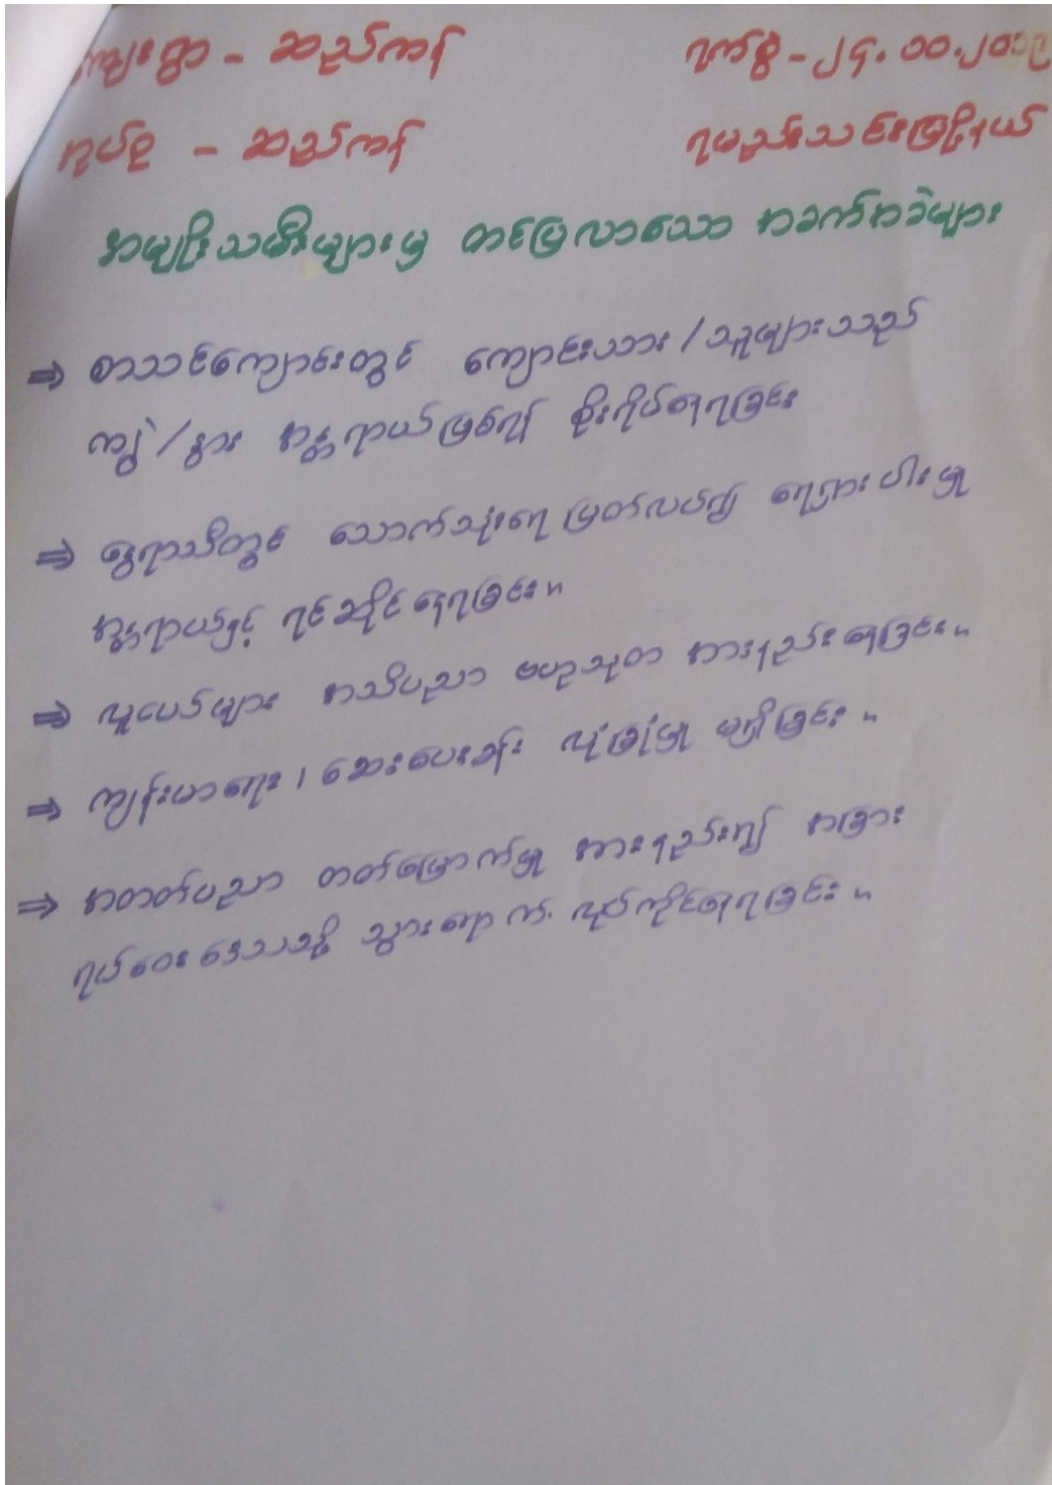 ကျေးရွာ - ဆည်ကန် ရက်စွဲ - ၂၄.၁၀.၂၀၁၉
အုပ်စု - ဆည်ကန် ရမည်းသင်းမြို့နယ်
အမျိုးသမီးများမှ တင်ပြလာသော အခက်အခဲများ
⇒ စာသင်ကျောင်းတွင် ကျောင်းသား/သူများသည်
ကျွဲ/နွား အန္တရာယ်ဖြစ်၍ စိုးရိပ်နေရခြင်း
⇒ နွေရာသီတွင် သောက်သုံးရေ ပြတ်လပ်၍ ရေရှားပါးမှု
အန္တရာယ်နှင့် ရင်ဆိုင်နေရခြင်း။
⇒ လူငယ်များ အသိပညာ ဗဟုသုတ အားနည်းနေခြင်း။
⇒ ကျန်းမာရေး၊ ဆေးပေးခန်း လုံခြုံမှု မရှိခြင်း။
⇒ အတတ်ပညာ တတ်မြောက်မှု အားနည်း၍ အခြား
ရပ်ဝေးဒေသသို့ သွားရောက် လုပ်ကိုင်နေရခြင်း။